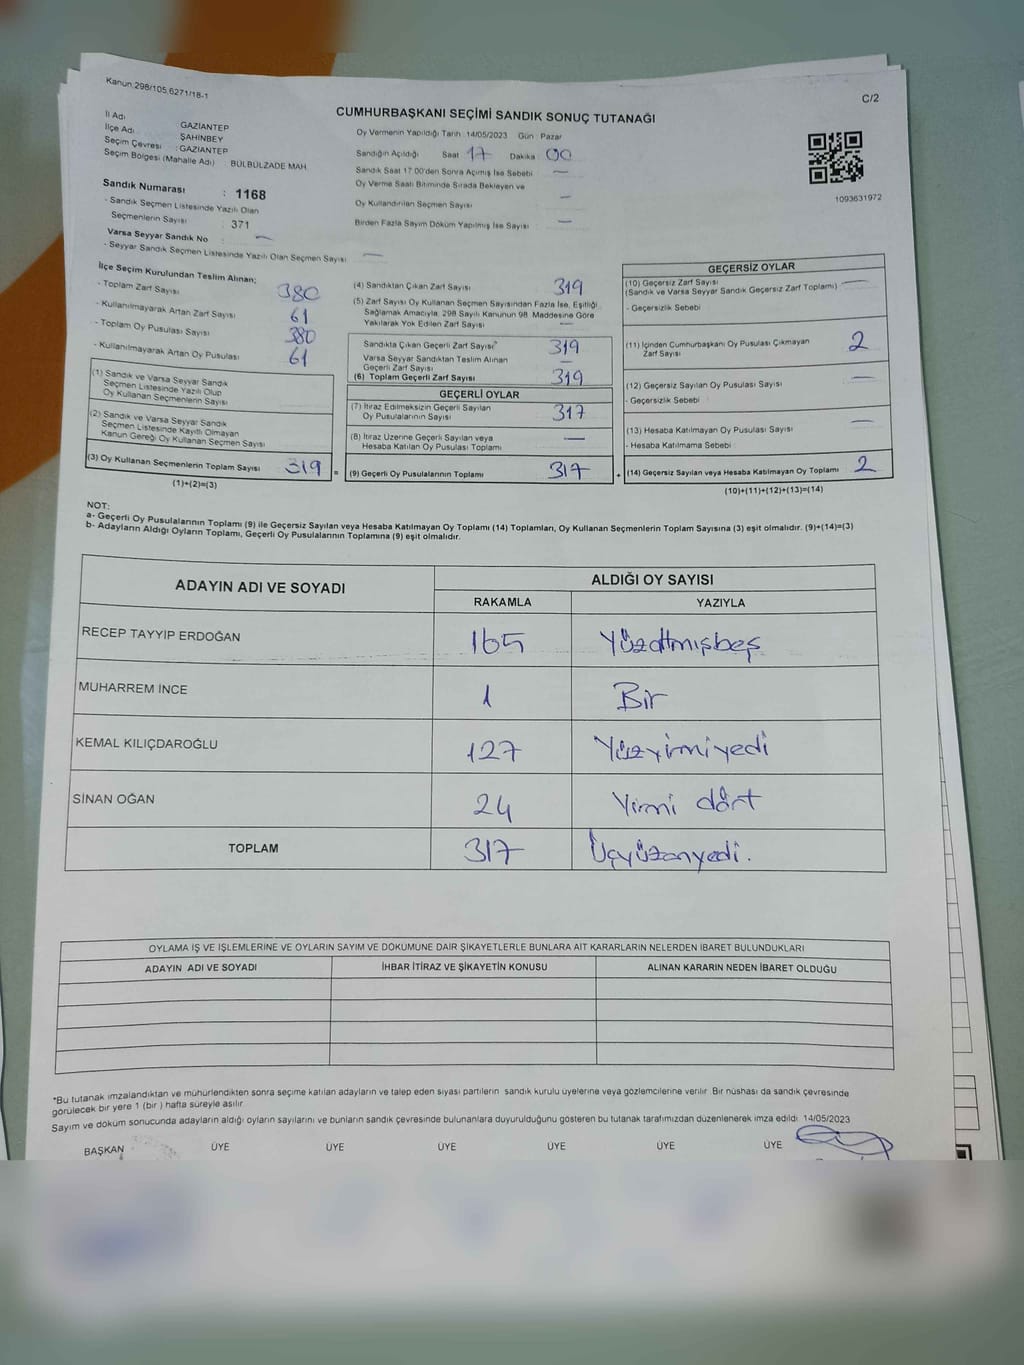 Kanun 298/105,6271/18-1
C/2
CUMHURBAŞKANI SEÇİMİ SANDIK SONUÇ TUTANAĞI
İl Adı GAZİANTEP
İlçe Adı ŞAHİNBEY
Seçim Çevresi : GAZİANTEP
Seçim Bölgesi (Mahalle Adı) : BÜLBÜLZADE MAH.
Sandık Numarası : 1168
- Sandık Seçmen Listesinde Yazılı Olan
Seçmenlerin Sayısı : 371
Varsa Seyyar Sandık No —
- Seyyar Sandık Seçmen Listesinde Yazılı Olan Seçmen Sayısı —
Oy Vermenin Yapıldığı Tarih : 14/05/2023 Gün : Pazar
Sandığın Açıldığı Saat 17 Dakika 00
Sandık Saat 17.00'den Sonra Açımış İse Sebebi —
Oy Verme Saati Bitiminde Sırada Bekleyen ve
Oy Kullandırılan Seçmen Sayısı —
Birden Fazla Sayım Döküm Yapılmış İse Sayısı —
1093631972
İlçe Seçim Kurulundan Teslim Alınan;
- Toplam Zarf Sayısı 380
- Kullanılmayarak Artan Zarf Sayısı 61
- Toplam Oy Pusulası Sayısı 380
- Kullanılmayarak Artan Oy Pusulası 61
(1) Sandık ve Varsa Seyyar Sandık
Seçmen Listesinde Yazılı Olup
Oy Kullanan Seçmenlerin Sayısı
(2) Sandık ve Varsa Seyyar Sandık
Seçmen Listesinde Kayıtlı Olmayan
Kanun Gereği Oy Kullanan Seçmen Sayısı
(3) Oy Kullanan Seçmenlerin Toplam Sayısı 319
(1)+(2)=(3)
=
(4) Sandıktan Çıkan Zarf Sayısı 319
(5) Zarf Sayısı Oy Kullanan Seçmen Sayısından Fazla İse, Eşitliği
Sağlamak Amacıyla, 298 Sayılı Kanunun 98. Maddesine Göre
Yakılarak Yok Edilen Zarf Sayısı —
Sandıkta Çıkan Geçerli Zarf Sayısı 319
Varsa Seyyar Sandıktan Teslim Alınan
Geçerli Zarf Sayısı —
(6) Toplam Geçerli Zarf Sayısı 319
GEÇERLİ OYLAR
(7) İtiraz Edilmeksizin Geçerli Sayılan
Oy Pusulalarının Sayısı 317
(8) İtiraz Üzerine Geçerli Sayılan veya
Hesaba Katılan Oy Pusulası Toplamı —
(9) Geçerli Oy Pusulalarının Toplamı 317
+
GEÇERSİZ OYLAR
(10) Geçersiz Zarf Sayısı
(Sandık ve Varsa Seyyar Sandık Geçersiz Zarf Toplamı) —
- Geçersizlik Sebebi
(11) İçinden Cumhurbaşkanı Oy Pusulası Çıkmayan
Zarf Sayısı 2
(12) Geçersiz Sayılan Oy Pusulası Sayısı —
- Geçersizlik Sebebi
(13) Hesaba Katılmayan Oy Pusulası Sayısı —
- Hesaba Katılmama Sebebi
(14) Geçersiz Sayılan veya Hesaba Katılmayan Oy Toplamı 2
(10)+(11)+(12)+(13)=(14)
NOT:
a- Geçerli Oy Pusulalarının Toplamı (9) ile Geçersiz Sayılan veya Hesaba Katılmayan Oy Toplamı (14) Toplamları, Oy Kullanan Seçmenlerin Toplam Sayısına (3) eşit olmalıdır. (9)+(14)=(3)
b- Adayların Aldığı Oyların Toplamı, Geçerli Oy Pusulalarının Toplamına (9) eşit olmalıdır.
ADAYIN ADI VE SOYADI ALDIĞI OY SAYISI
RAKAMLA YAZIYLA
RECEP TAYYİP ERDOĞAN 165 Yüzaltmışbeş
MUHARREM İNCE 1 Bir
KEMAL KILIÇDAROĞLU 127 Yüzyirmiyedi
SİNAN OĞAN 24 Yirmi dört
TOPLAM 317 Üçyüzonyedi.
OYLAMA İŞ VE İŞLEMLERİNE VE OYLARIN SAYIM VE DÖKÜMÜNE DAİR ŞİKAYETLERLE BUNLARA AİT KARARLARIN NELERDEN İBARET BULUNDUKLARI
ADAYIN ADI VE SOYADI İHBAR İTİRAZ VE ŞİKAYETİN KONUSU ALINAN KARARIN NEDEN İBARET OLDUĞU
*Bu tutanak imzalandıktan ve mühürlendikten sonra seçime katılan adayların ve talep eden siyasi partilerin sandık kurulu üyelerine veya gözlemcilerine verilir. Bir nüshası da sandık çevresinde
görülecek bir yere 1 (bir) hafta süreyle asılır.
Sayım ve döküm sonucunda adayların aldığı oyların sayılarını ve bunların sandık çevresinde bulunanlara duyurulduğunu gösteren bu tutanak tarafımızdan düzenlenerek imza edildi. 14/05/2023
BAŞKAN ÜYE ÜYE ÜYE ÜYE ÜYE ÜYE